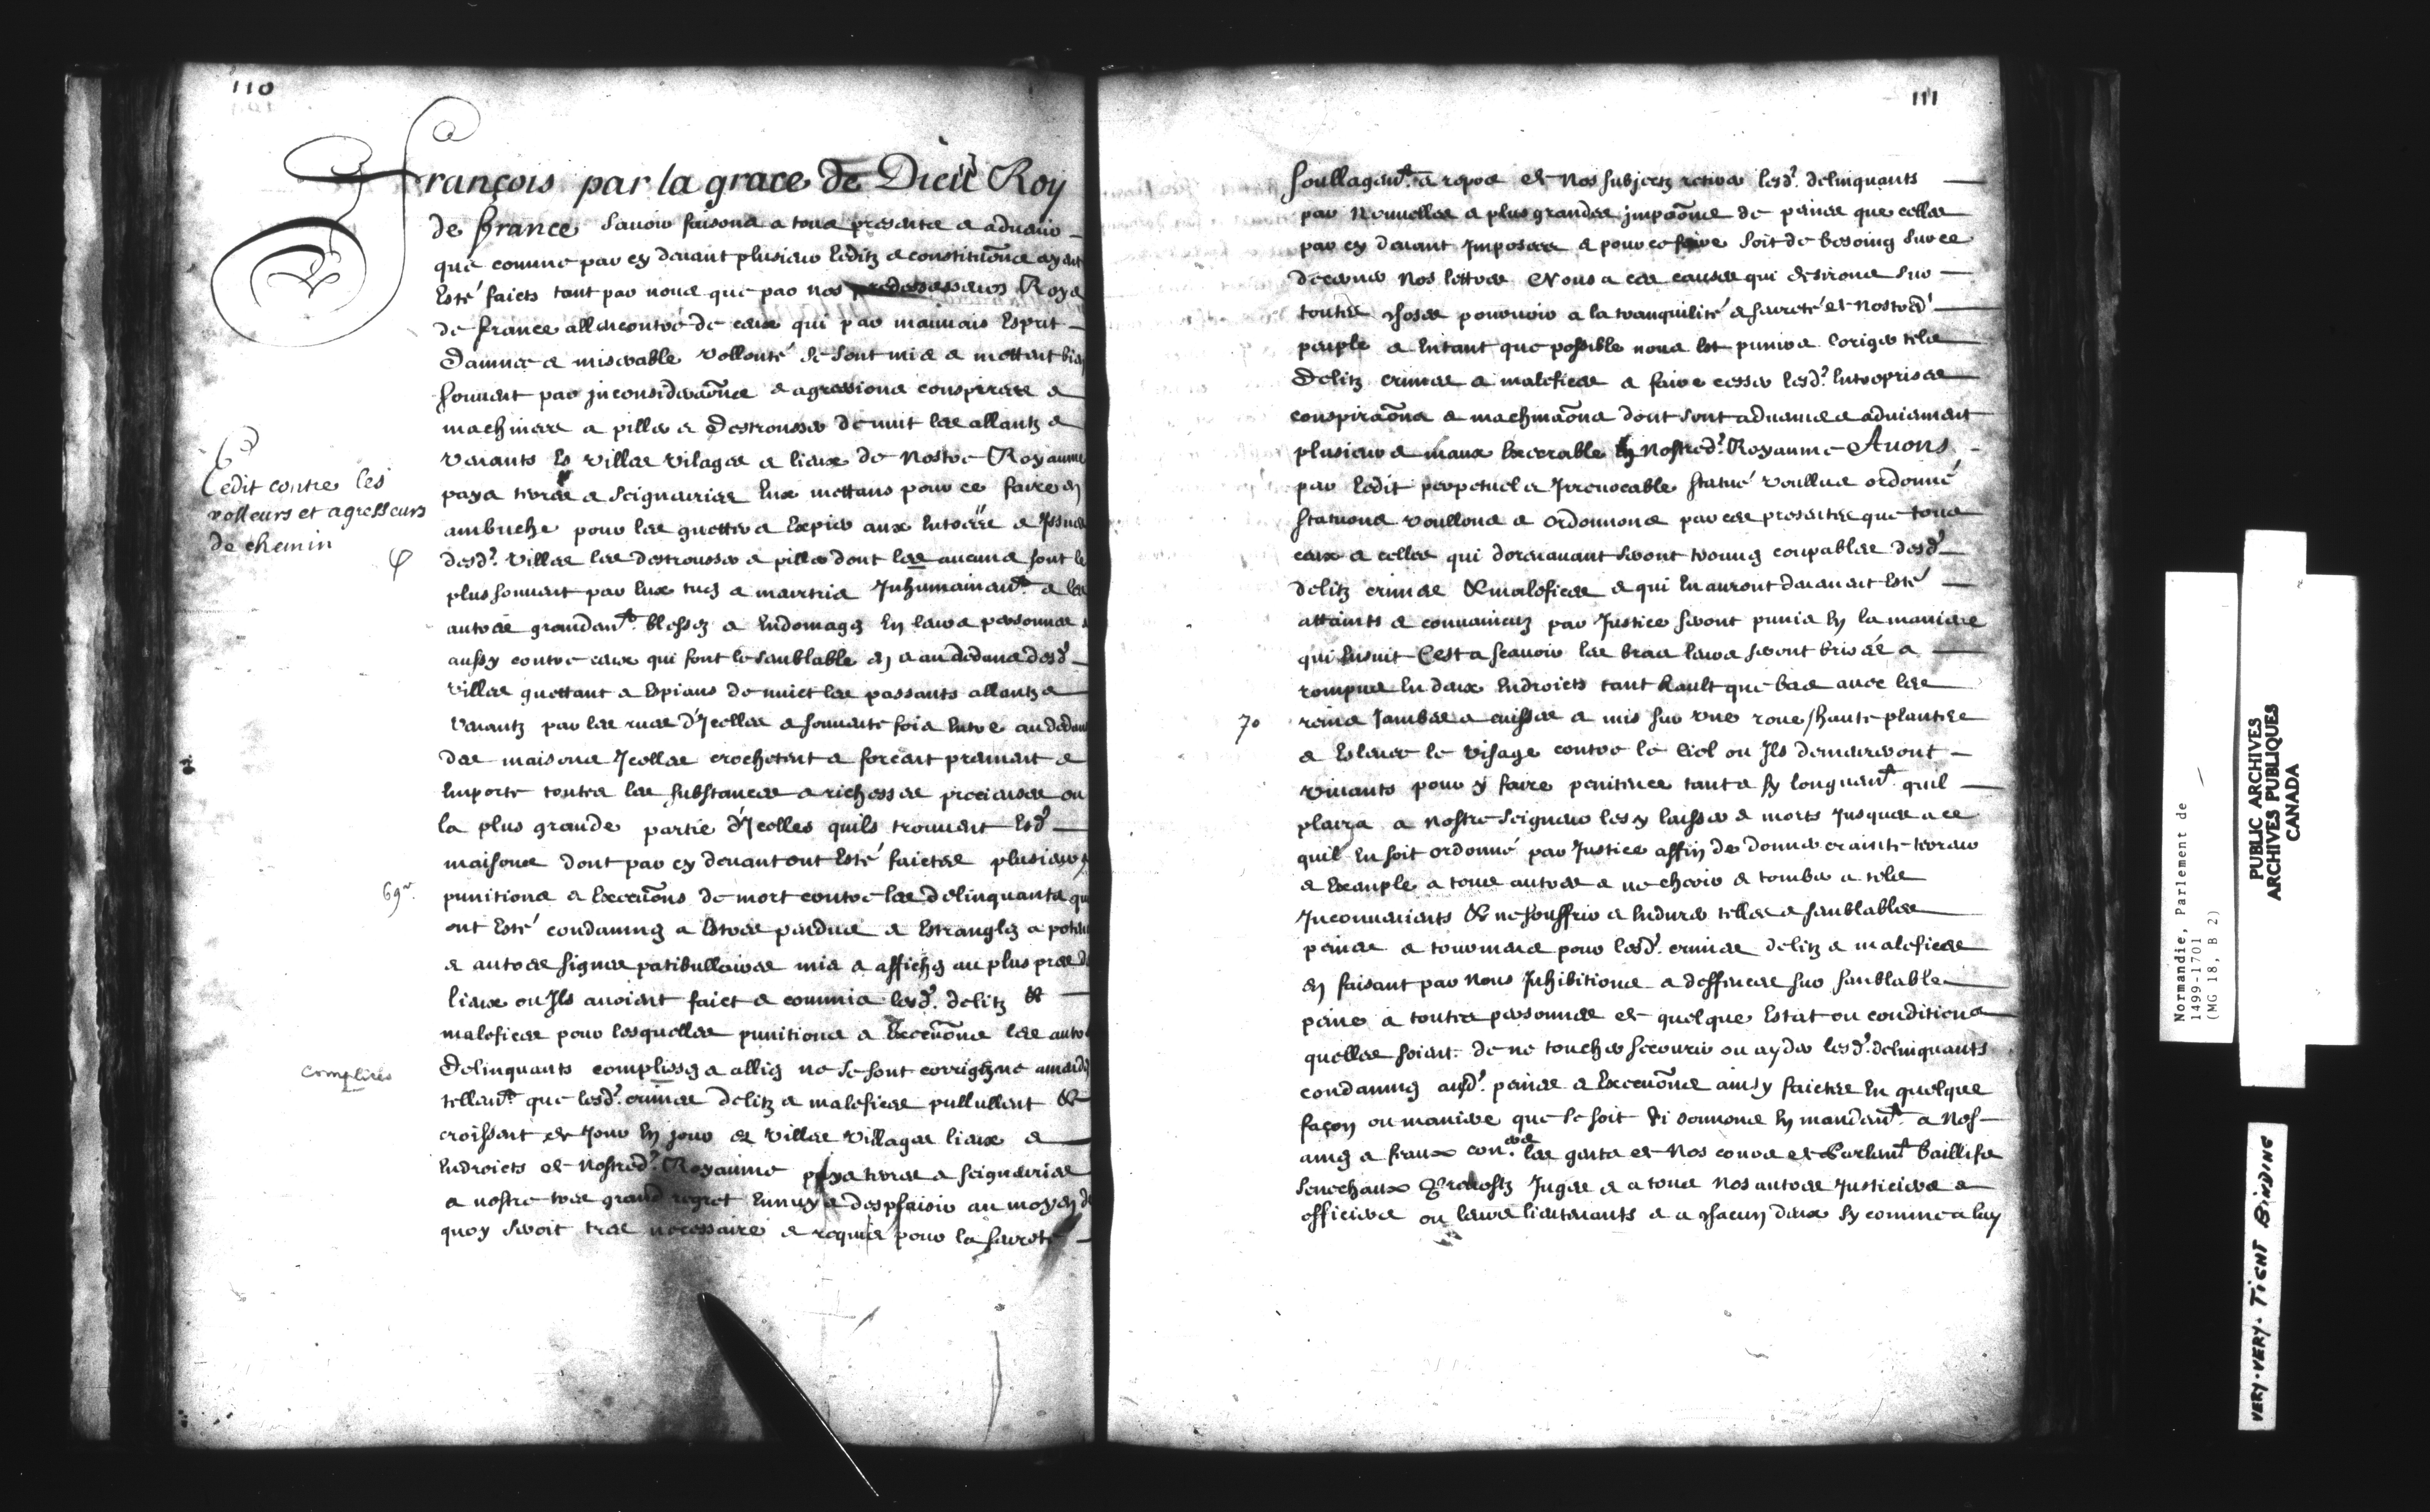 110
François par la grace de Dieu Roy
de france Sauoir faisons a tous presents et aduenir
que comme par cy deuant plusieurs Eeditz et constitutions ayent
Esté faicts tant par nous que par nos predecesseurs Roys
de france allencontre de ceux qui par mauuais Esprit
Damné et miserable vollonté se sont mis et mettent bien
souuent par inconsiderations et agressions conspirées et
machinées a piller et Destrousser de nuit les allantz et
venants Es villes vilages et lieux de Nostre Royaume
pays terres et seigneuries Eux mettans pour ce faire en
ambuche pour les guetter et Expier aux Entrées et Issues
desd. villes les destrousser et piller dont les aucuns sont le
plus souuent par Eux tués et meurtris Inhumainemt et les
autres grandemt blessez et Endomagés En leurs personnes
aussy contre ceux qui font le semblable en et au dedans desd
villes guettant et Espians de nuict les passants allantz et
venantz par les rues d'Icelles et souuente fois Entre au dedans
des maisons Icelles crochetent et forceant prennent et
Emporte toutes les substances et richesses precieuses ou
la plus grande partie d'Icelles quils trouuent Esd
maisons dont par cy deuant ont Esté faictes plusieurs
punitions et Executions de mort contre les delinquants qui
ont Esté condamnés a Estre pendus et Estranglés a potence
et autres signes patibullaires mis et affichés au plus pres des
lieux ou Ils auoient faict et commis lesd. delitz et
malefices pour lesquelles punitions et Executions les autres
Delinquants complisses et alliés ne se sont corrigés ne amendés
tellemt que lesd. crimes delitz et malefices pullullent et
croissent de Jour En jour es villes villages lieux et
Endroicts de Nostred. Royaume pays terres et seigneuries
a nostre tres grand regret Ennuy et desplaisir au moyen de
quoy seroit tres necessaire et requis pour la seureté
Eedit contre les
volleurs et agresseurs
de chemin
69
complices
111
soullagemt et repos de Nos subjectz retirer lesd. delinquants
par Nouuelles et plus grandes imposons de peines que celles
par cy deuant Imposées et pour ce faire soit de besoing sur ce
decerner Nos lettres Nous a ces causes qui desirons sur
toutes choses pouruoir a la tranquilité et seureté de Nostred
peuple et Entant que possible nous Est punir et coriger tels
Delitz crimes et malefices et faire cesser lesd. Entreprises
conspirations et machinations dont sont aduenus et aduiennent
plusieurs maux Execrable En Nostred. Royaume Auons
par Eedit perpetuel et Irreuocable statué voullu et ordonné
statuons voullons et ordonnons par ces presentes que tous
ceux et celles qui dorenauant seront trouués coupables desd
delitz crimes et malefices et qui En auront deuant Esté
attaints et conuaincuz par Justice seront punis En la maniere
qui Ensuit C'est a scauoir les bras leurs seront brisés et
rompus En deux Endroicts tant hault que bas auec les
reins Jambes et cuisses et mis sur vne roue haute plantée
et Esleuée le visage contre le Ciel ou Ils demeureront
viuants pour y faire penitence tant et sy longuemt quil
plaira a Nostre Seigneur les y laisser et morts Jusques a ce
quil En soit ordonné par Justice affin de donner crainte terreur
et Exemple a tous autres a ne cheoir et tomber a tels
Inconuenients et ne souffrir et Endurer telles et semblables
peines et tourmens pour lesd. crimes delitz et malefices
en faisant par Nous Inhibitions et deffences sur semblable
peine a toutes personnes de quelque Estat ou conditions
quelles soient de ne toucher secourir ou ayder lesd. delinquants
condamnés ausd. peines et Executions ainsy faictes En quelque
façon ou maniere que ce soit Si donnons En mandemt a Nos
amés et feaux coners les gents de Nos cours de Parlemt Baillifs
Senechaux Preuostz Juges et a tous Nos autres Justiciers et
officiers ou leurs lieutenants et a chacun deux sy comme a luy
70
Normandie, Parlement de
1499-1701
(MG 18, B 2)
PUBLIC ARCHIVES
ARCHIVES PUBLIQUES
CANADA
VERY-VERY-TIGHT BINDING